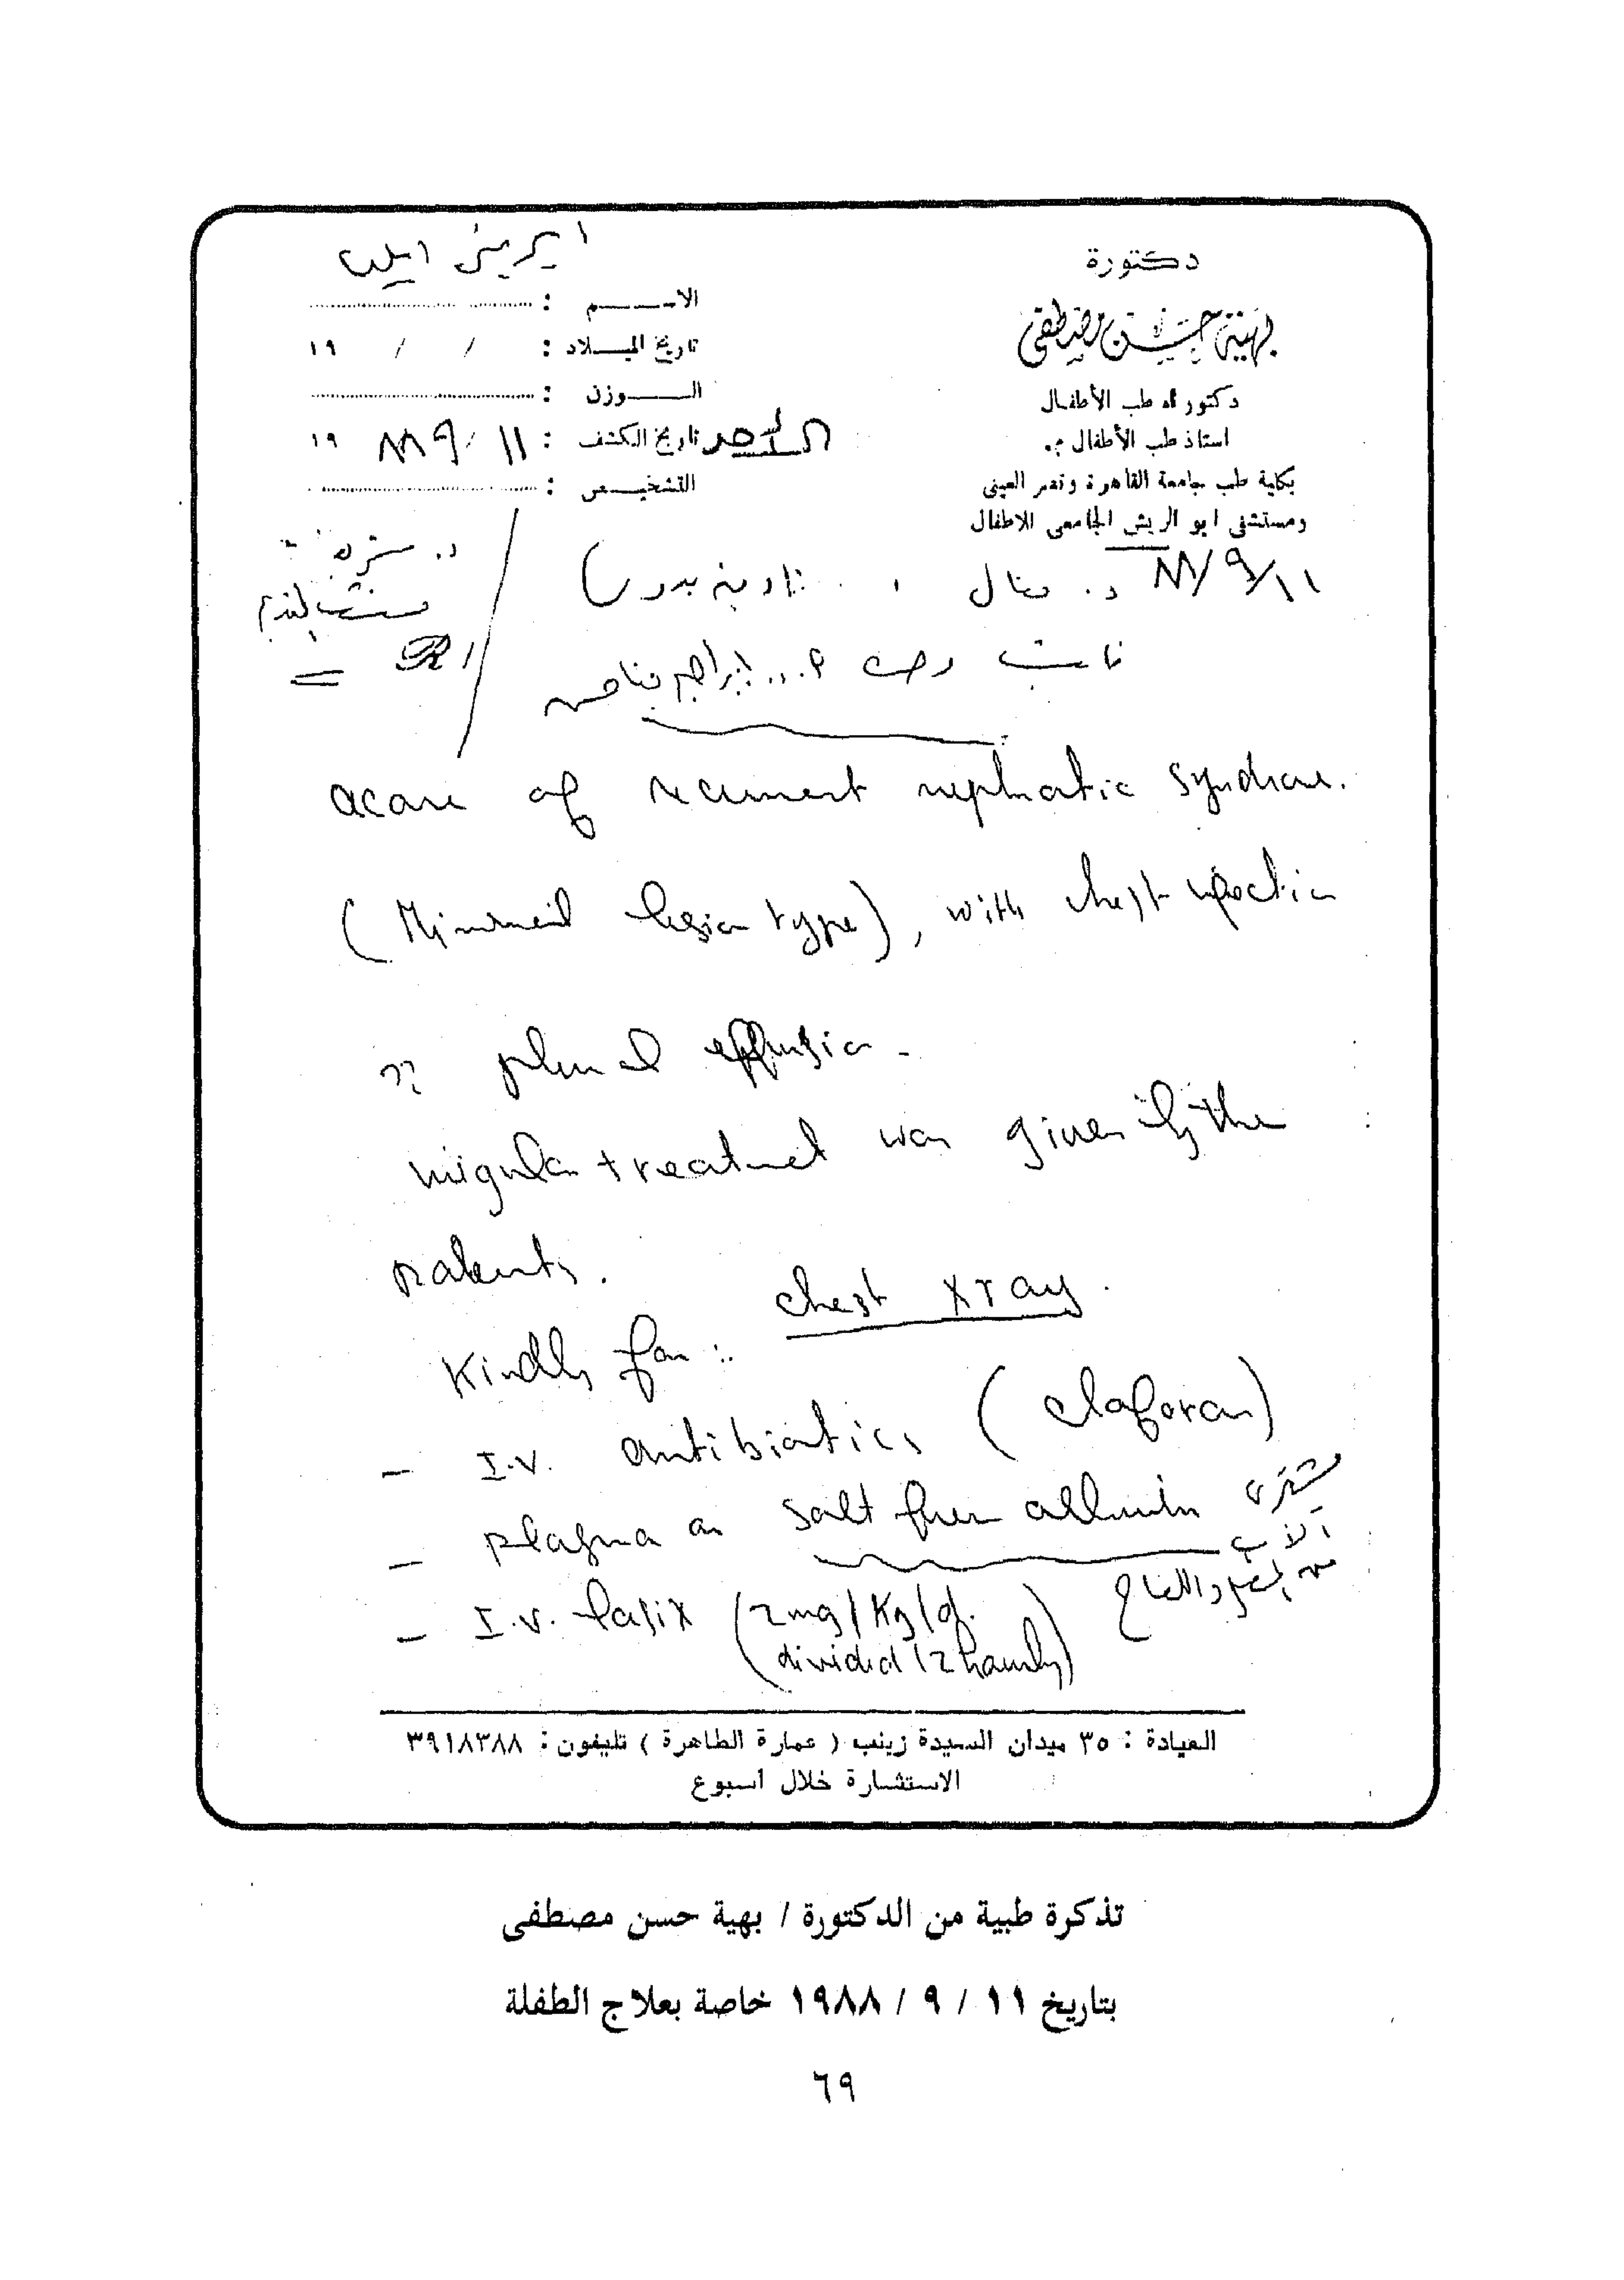 دكتورة
بهية حسن مصطفى
دكتوراه طب الأطفال
استاذ طب الأطفال م.
بكلية طب جامعة القاهرة وقصر العينى
ومستشفى ابو الريش الجامعى للاطفال
ايرينى
الاسم :
تاريخ الميلاد : / / ١٩
الوزن :
الأحد تاريخ الكشف : ١١ / ٩ ٨٨ ١٩
التشخيص :
١١/٩/٨٨ د. منال
R/
a case of recurrent nephrotic syndrome.
(Minimal lesion type), with chest infection
?? pleural effusion -
irregular treatment was given by the
parents.
Kindly for : chest x ray.
- I.V. antibiotics (claforan)
- plasma or salt free albumin
- I.V. lasix (2mg/Kg/d.
divided 12 hourly)
العيادة : ٣٥ ميدان السيدة زينب ( عمارة الطاهرة ) تليفون : ٣٩١٨٣٨٨
الاستشارة خلال اسبوع
تذكرة طبية من الدكتورة / بهية حسن مصطفى
بتاريخ ١١ / ٩ / ١٩٨٨ خاصة بعلاج الطفلة
٦٩